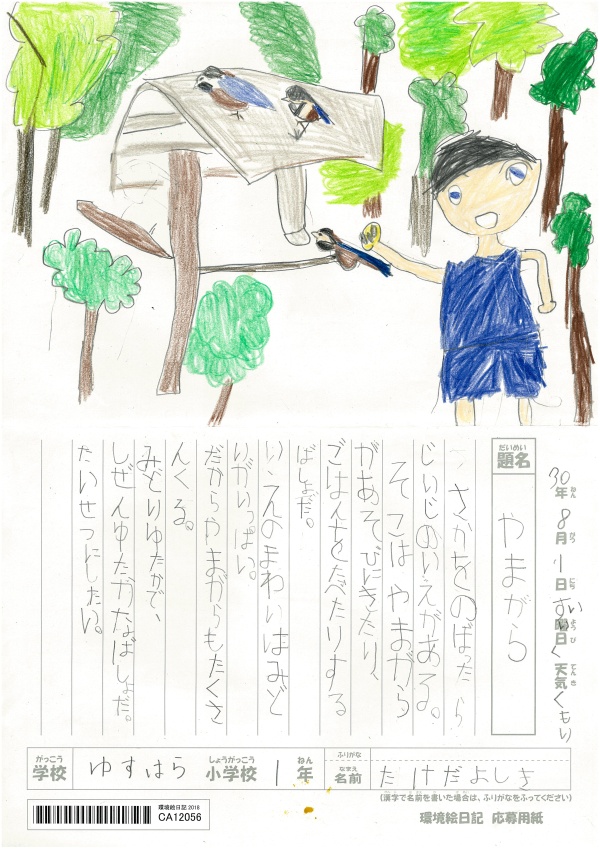 30年ねん8月がつ1日にちすい曜日ようび天気てんきくもり
題名だいめい
やまがら
さかをのぼったら
じいじのいえがある。
そこはやまがら
があそびにきたり、
ごはんをたべたりする
ばしょだ。
いえのまわりはみど
りがいっぱい。
だからやまがらもたくさ
んくる。
みどりゆたかで、
しぜんゆたかなばしょだ。
たいせつにしたい。
がっこう しょうがっこう ねん ふりがな
学校 ゆすはら 小学校 1年 なまえ 名前 たけだよしき
(漢字で名前を書いた場合は、ふりがなをふってください)
環境絵日記 2018
CA12056
環境絵日記 応募用紙